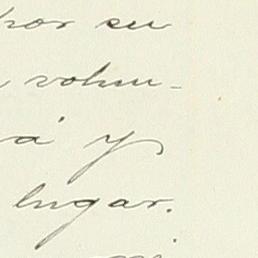 por su
volun-
á y
lugar.